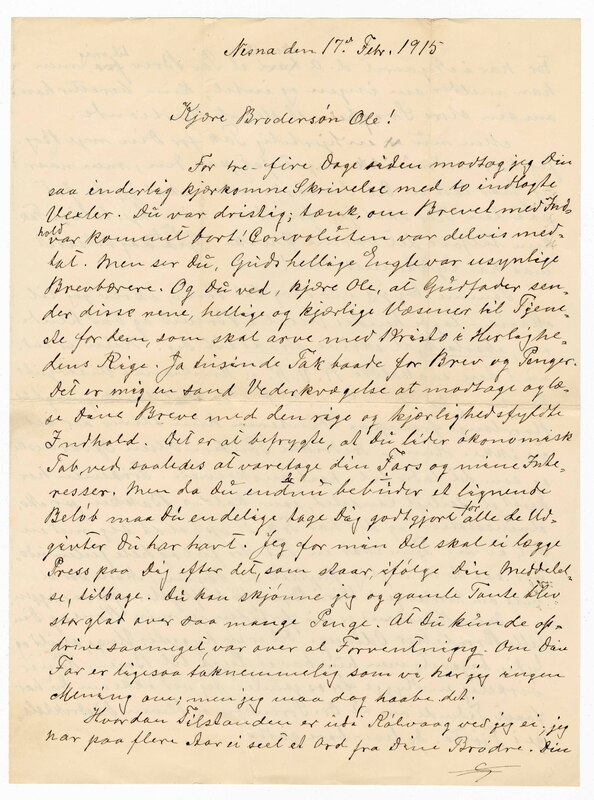 Nesna den 17de Febr. 1915
Kjære Brodersøn Ole!
For tre-fire Dage siden modtog jeg Din
saa inderlig kjærkomne Skrivelse med to indlagte
Vexler. Du var dristig; tænk, om Brevet med Ind-
hold var kommet bort! Convoluten var delvis med-
tat. Men ser Du, Guds hellige Engle var usynlige
Brevbærere. Og Du ved, kjære Ole, at Gudfader sen-
der disse rene, hellige og kjærlige Væsener til Tjene-
ste for dem, som skal arve med Kristo i Herlighe-
dens Rige. Ja tusinde Tak baade for Brev og Penger.
Det er mig en sand Vederkvægelse at modtage og læ-
se Dine Breve med den rige og kjærlighedsfyldte
Indhold. Det er at befrygte, at Du lider økonomisk
Tab, ved saaledes at varetage din Fars og mine Inte-
resser. Men da Du endnu bebuder et lignende
Beløb maa Du endelige tage Dig godtgjort for alle de Ud-
givter Du har havt. Jeg for min Del skal ei lægge
Press paa Dig efter det, som staar, ifølge Din Meddelel-
se, tilbage. Du kan skjønne jeg og gamle Tante blev
storglad over saa mange Penge. At Du kunde op-
drive saameget, var over al Forventning. Om Din
Far er ligesaa taknemmelig som vi, har jeg ingen
Mening om; men jeg maa dog haabe det.
Hvordan Tilstanden er udi Kalvaag ved jeg ei; jeg
har paa flere Aar ei seet et Ord fra Dine Brødre. Din